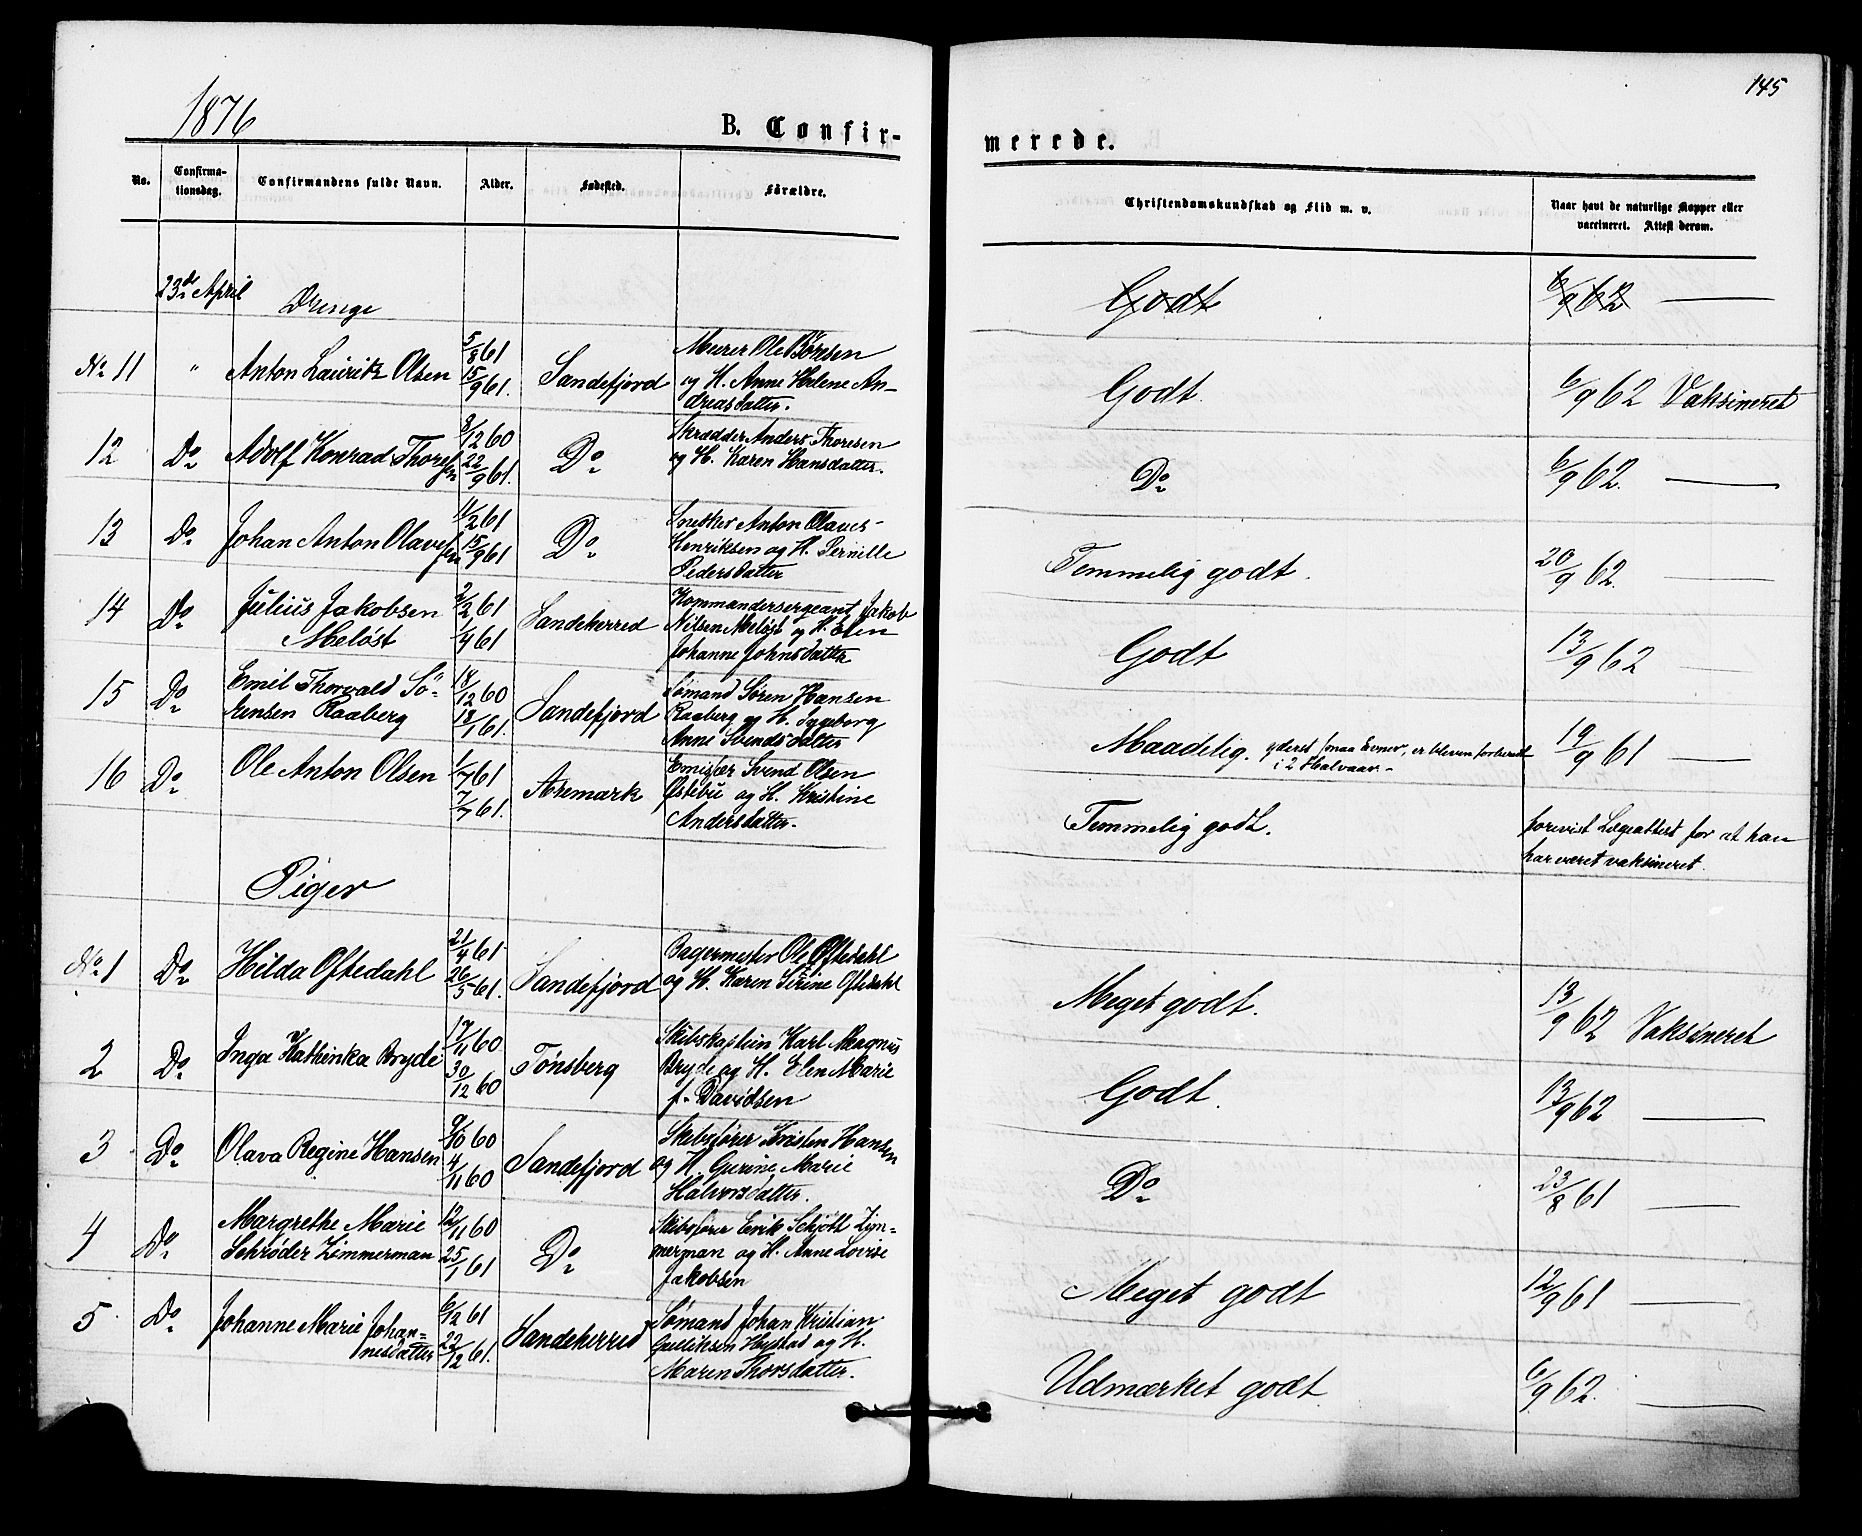 1876
B. Confir-
No. Confirma-tionsdag. Confirmandens fulde Navn. Alder. Fødested. Forældre.
23de April Drenge
No 11 " Anton Laurits Olsen 5/8 61 15/9 61. Sandefjord Murer Ole Børresen
og H. Anne Helene An-
dreasdatter.
12 Do Adolf Konrad Thoresen 8/12 60 22/9 61. Do Skrædder Anders Thoresen
og H. Karen Hansdatter.
13 Do Johan Anton Olavesen 1/2 61 15/9 61 Do Snedker Anton Olaves-
Henriksen og H. Pernille
Pedersdatter
14 Do Julius Jakobsen
Meløst 2/2 61 1/4 61 Sandeherred Kommandersergeant Jakob
Nilsen Meløst og H. Elen
Johanne Johnsdatter
15 Do Emil Thorvald Sö-
rensen Raaberg 18/12 60 18/1 61. Sandefjord Sømand Søren Hansen
Raaberg og H. Ingeborg
Anne Svendsdatter
16 Do Ole Anton Olsen 1/7 61 7/7 61. Aremark Emisær Svend Olsen
Østebü og H. Kristine
Andersdatter.
Piger
No 1 Do Hilda Oftedahl 21/4 61 26/5 61. Sandefjord Bagermester Ole Oftedahl
og H. Karen Sirine Oftedahl
2 Do Inga Kathinka Bryde 17/11 60 30/12 60 Tønsberg Skibskaptein Karl Magnus
Bryde og H. Elen Marie
f. Davidsen
3 Do Olava Regine Hansen 9/10 60 4/11 60 Sandefjord Skibsfører Kristen Hansen
og H. Gurine Marie
Halvorsdatter.
4 Do Margrethe Marie
Schrøder Zimmerman 12/11 60 25/1 61 Do Skibsfører Erik Schjøth Zim-
merman og H. Anne Lovise
Jakobsen
5 Do Johanne Marie Johan-
nesdatter 6/12 61 22/12 61. Sandeherred Sømand Johan Kristian
Gulliksen Hystad og H.
Maren Thorsdatter.
145
merede.
Christendomskundskab og Flid m. v. Naar havt de naturlige Kopper eller
vaccineret. Attest derom.
Godt 6/9 62 —
Godt. 6/9 62 Vaksineret
Do 6/9 62. —
Temmelig godt. 20/9 62. —
Godt 13/9 62 —
Maadelig. yderst smaa Evner, er bleven forberedt
i 2 Halvaar - 19/9 61 —
Temmelig godt. forevist Lægeattest for at han
har været vaksineret.
Meget godt. 13/9 62 Vaksineret
Godt. 13/9 62 —
Do 23/8 61 —
Meget godt 12/9 61 —
Udmærket godt 6/9 62. —